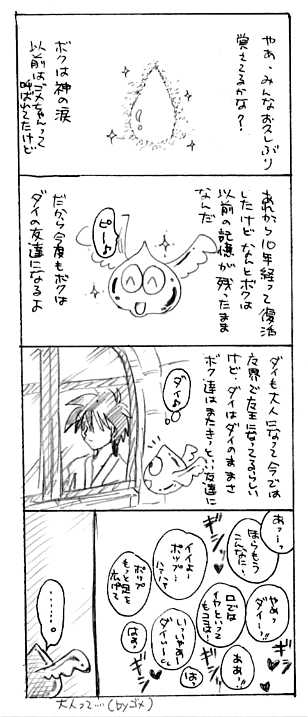 やあ、みんなお久しぶり
覚えてるかな？
ボクは神の涙
以前はゴメちゃんって
呼ばれてたけど
あれから10年経って復活
したけどなんとボクは
以前の記憶が残ったまま
なんだ
ピー♪
だから今度もボクは
ダイの友達になるよ
ダイも大人になって今では
魔界で王になってるらしい
けど、ダイはダイのままさ
ボク達はまたきっといい友達に
ダイ♪
あっ…っ
ほらもう
こんなに…
やめっ
ダイ…っ!!
ギシ
イイよ…
ポップ…
ハァハァ
口では
イヤといって
もココは…
ポップ
もっと足を
広げて
ギシ
いっいゃぁー
ダイぃー
ああっ
はぁっ
はっ
ギシ
ギシ
………
大人って…(byゴメ)